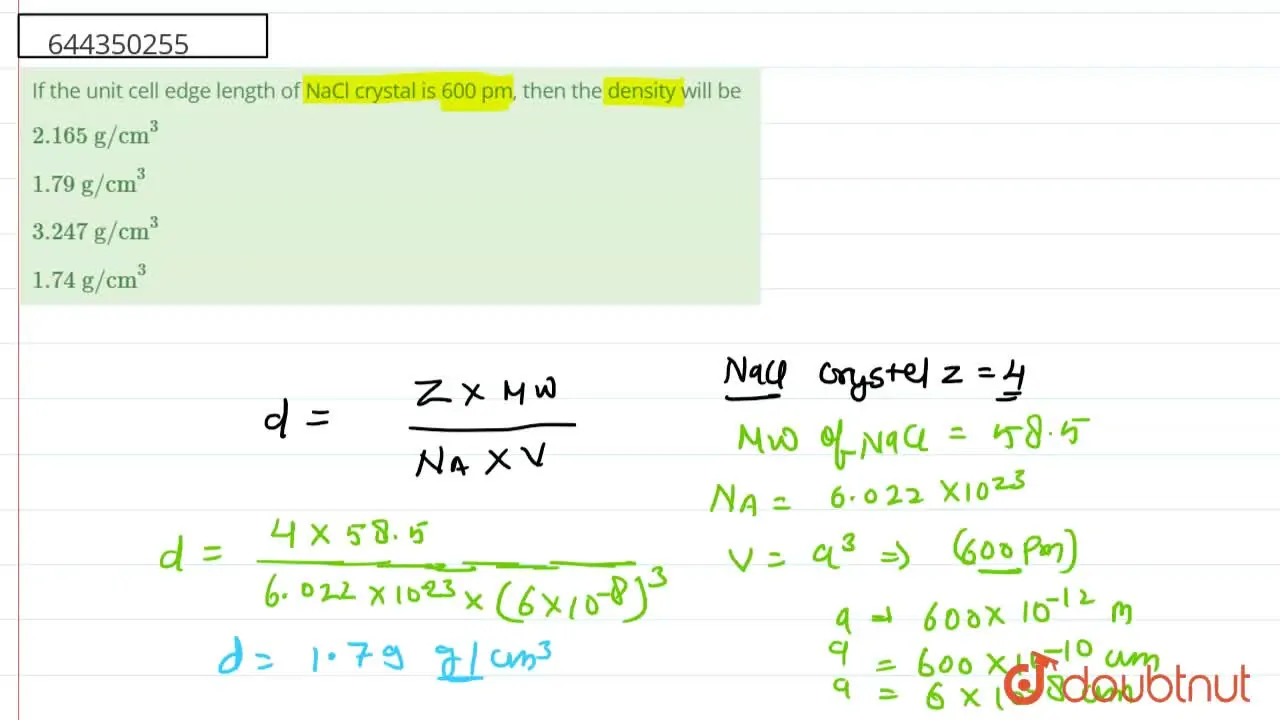 644350255
If the unit cell edge length of NaCl crystal is 600 pm, then the density will be
2.165 g/cm³
1.79 g/cm³
3.247 g/cm³
1.74 g/cm³
d = Z × MW / NA × V
NaCl crystel z = 4
MW of NaCl = 58.5
NA = 6.022 × 10²³
V = a³ ⇒ (600 pm)
d = 4 × 58.5 / 6.022 × 10²³ × (6 × 10⁻⁸)³
a → 600 × 10⁻¹² m
d = 1.79 g/cm³
a = 600 × 10⁻¹⁰ cm
a = 6 × 10⁻⁸ cm
doubtnut